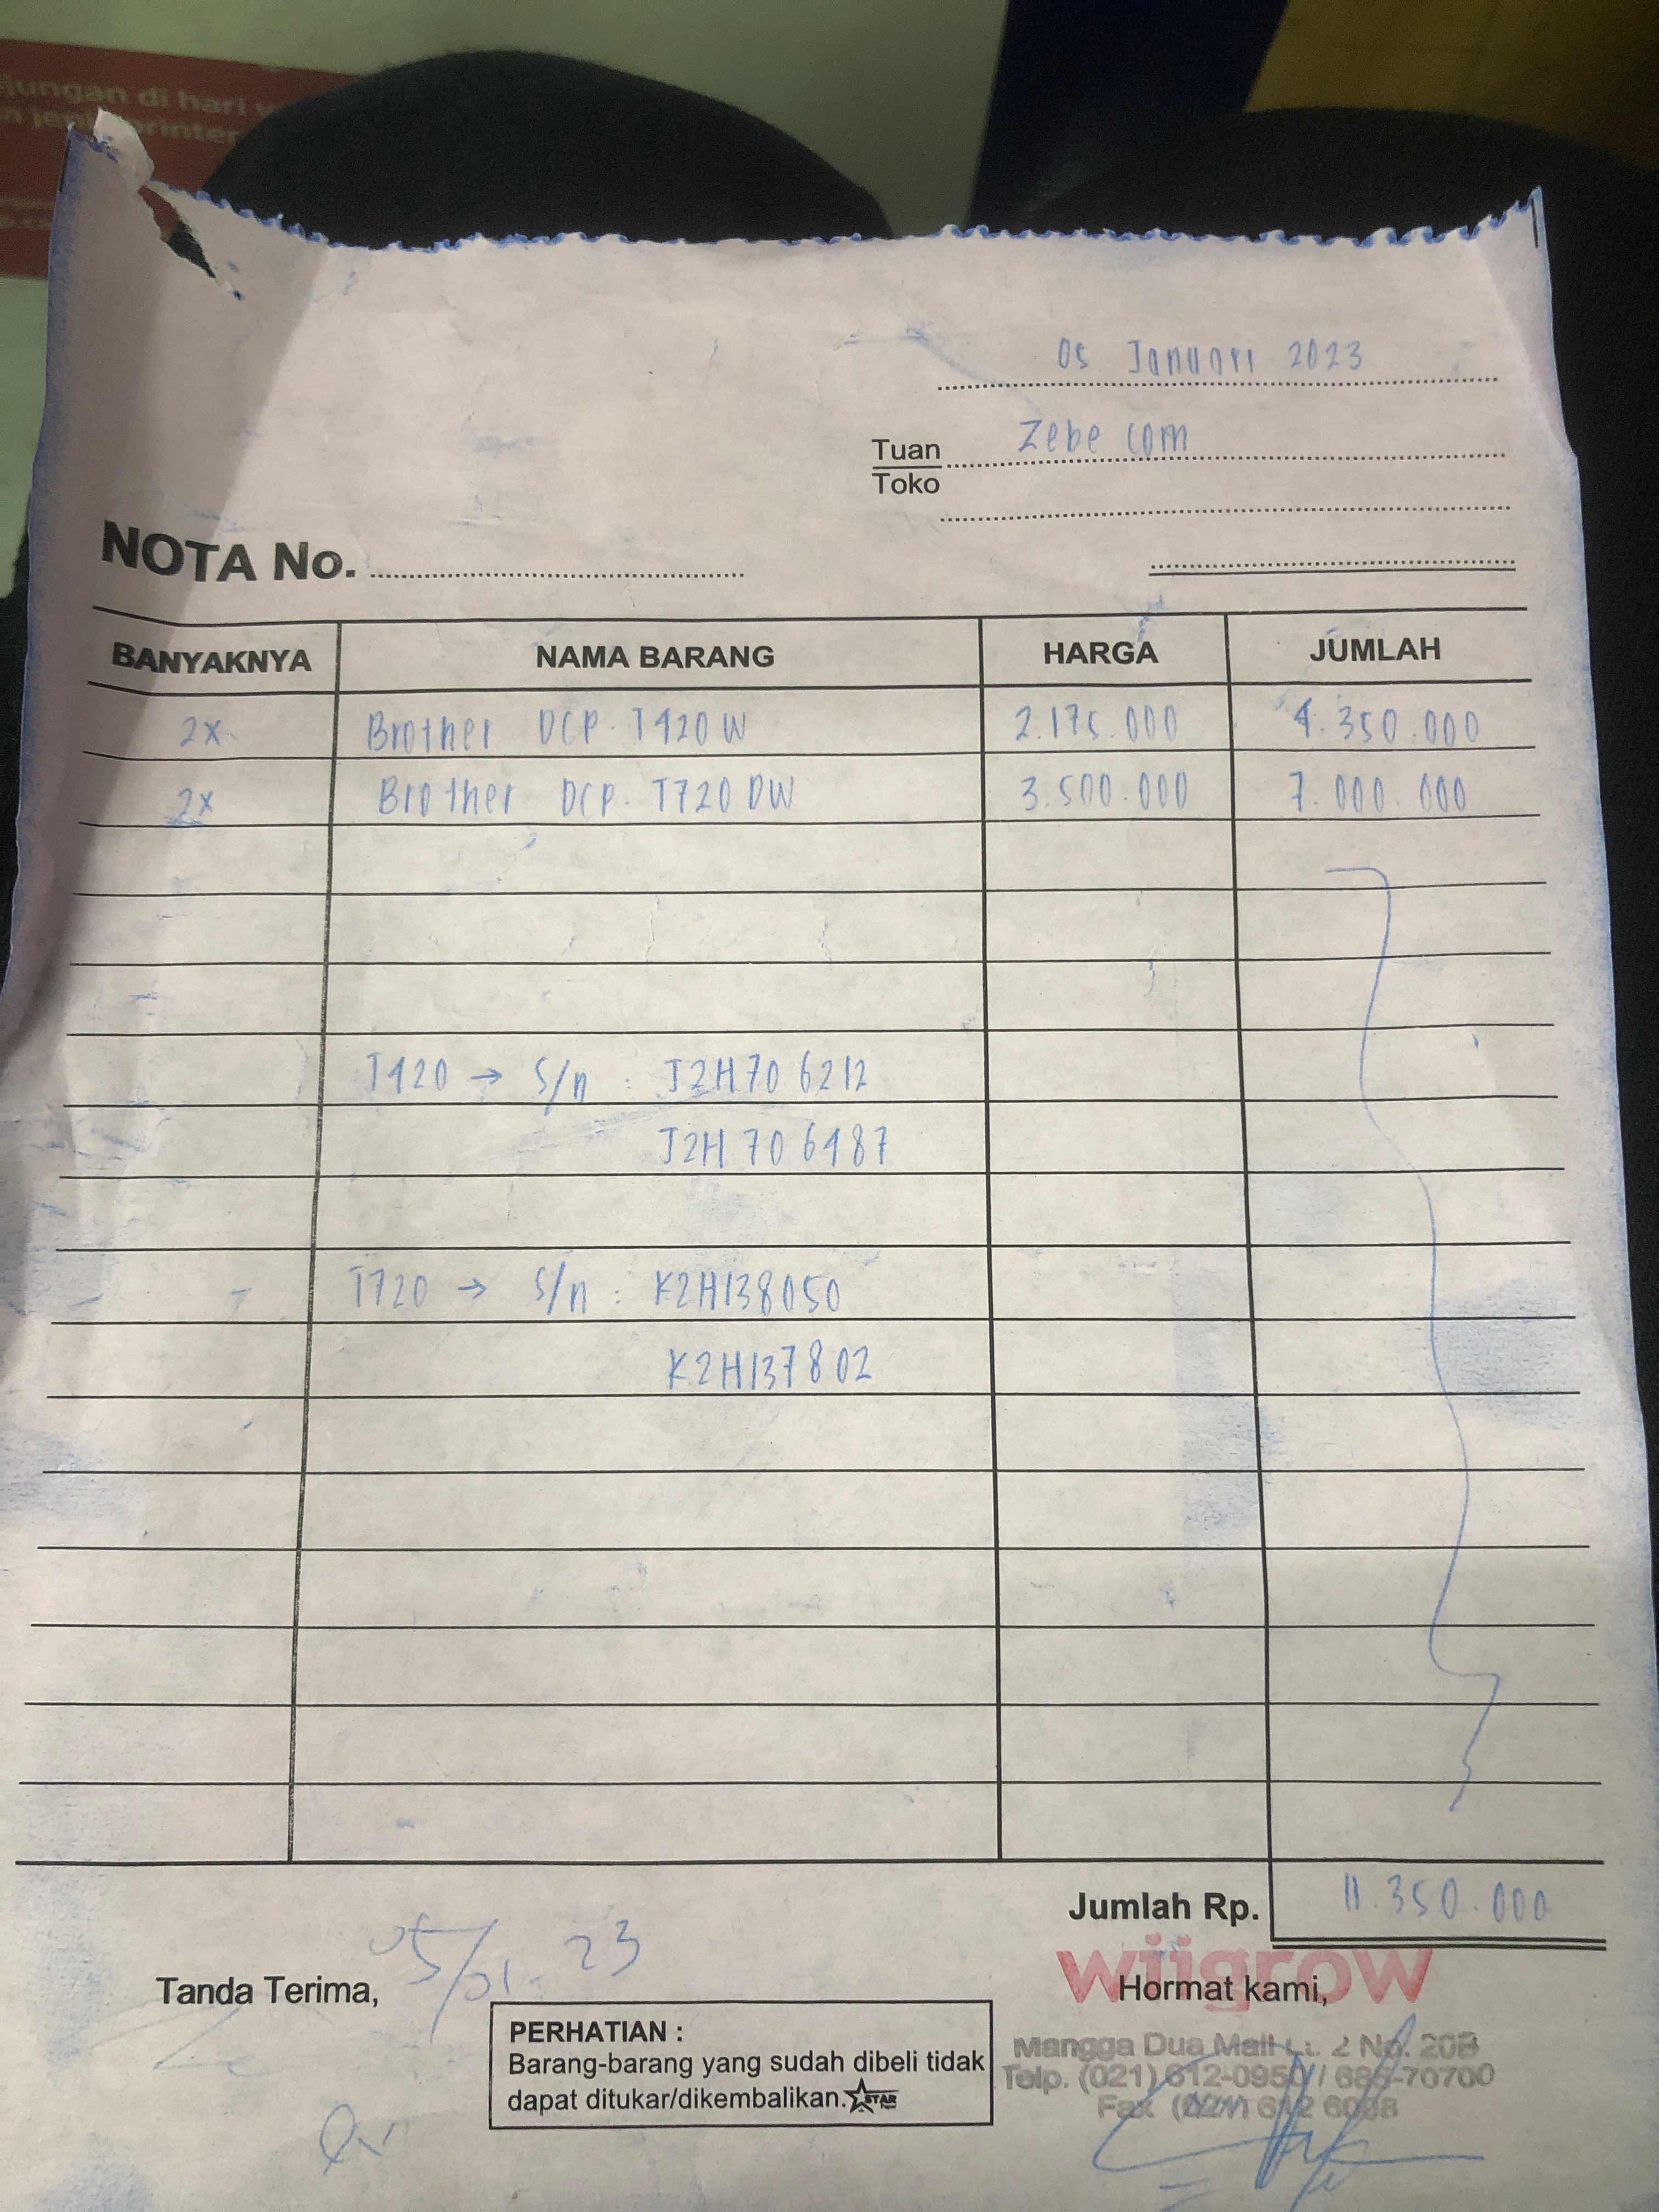 jungan di hari
a jen printer
05 Januari 2023
Tuan Zebe com
Toko
NOTA No.
BANYAKNYA NAMA BARANG HARGA JUMLAH
2x Brother DCP. T420W 2.175.000 4.350.000
2x Brother DCP. T720DW 3.500.000 7.000.000
T420 → S/n : J2H706212
J2H706487
T720 → S/n : K2H138050
K2H137802
Jumlah Rp. 11.350.000
05/01-23
wiigrow
Tanda Terima, Hormat kami,
PERHATIAN :
Barang-barang yang sudah dibeli tidak
dapat ditukar/dikembalikan. STAR
Mangga Dua Mall Lt. 2 No. 20B
Telp. (021) 612-0950 / 685-70700
Fax (021) 612 6088